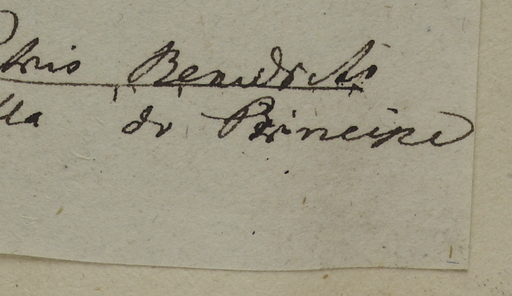 tris Benedicti
lla de Principe